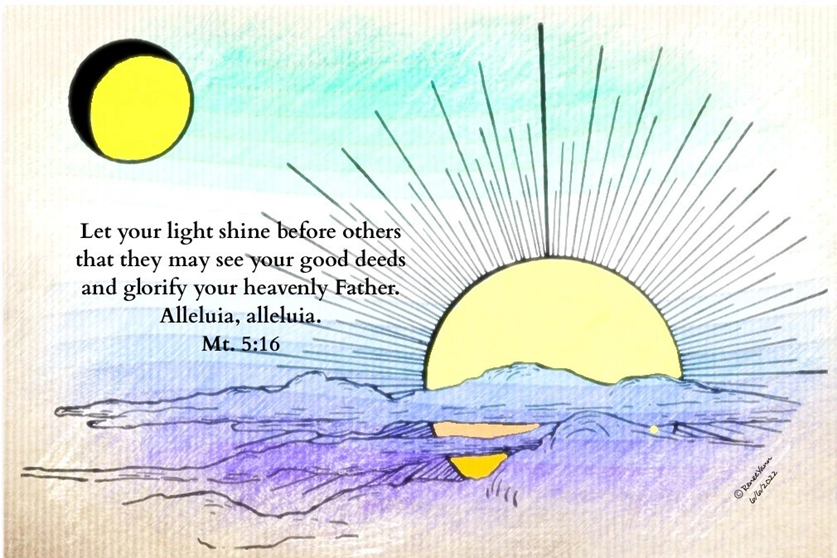 Let your light shine before others
that they may see your good deeds
and glorify your heavenly Father.
Alleluia, alleluia.
Mt. 5:16
© Renee Yann
6/6/2022